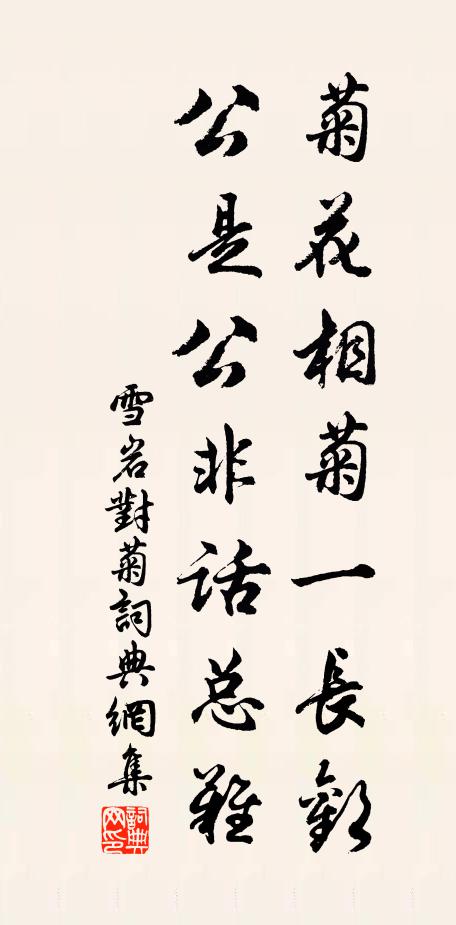 菊花相菊一長歎
公是公非話总難
雪岩對菊詞典網集
詞典
网印